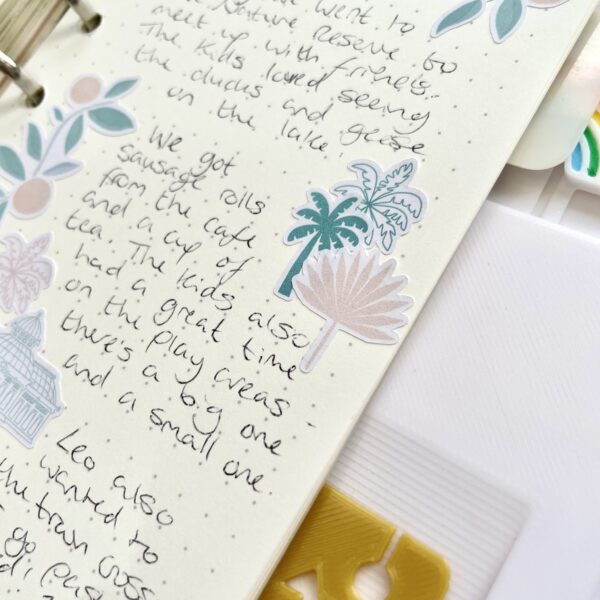 went to
Nature Reserve to
meet up with friends.
The kids loved seeing
the ducks and geese
on the lake
We got
sausage rolls
from the cafe
and a cup of
tea. The kids also
had a great time
on the play areas -
there's a big one
and a small one.
Leo also
wanted to
the train cross
go
past